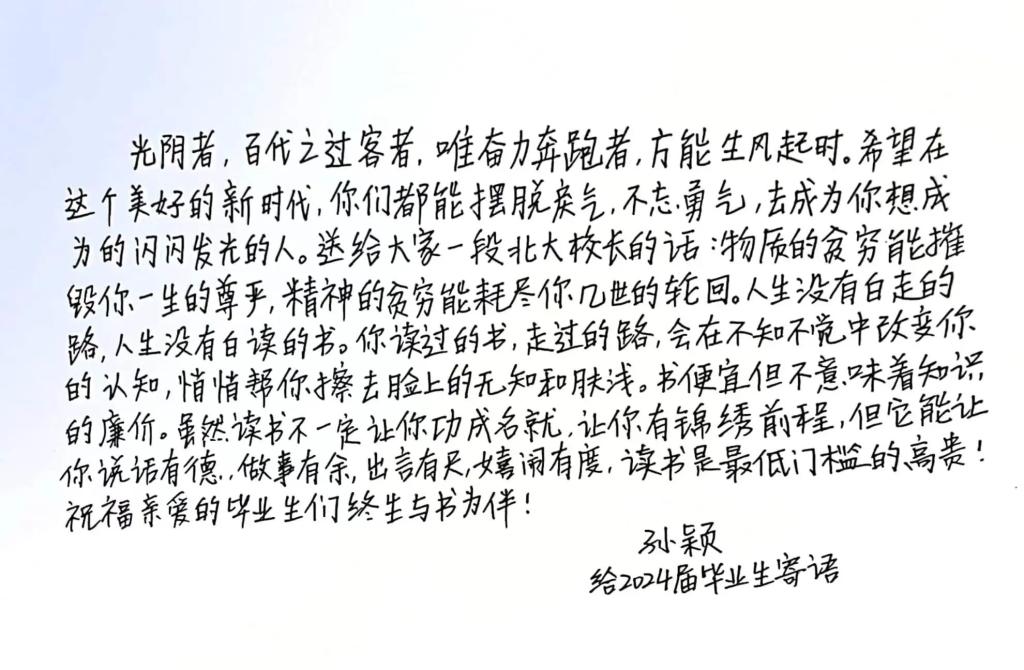 光阴者，百代之过客者，唯奋力奔跑者，方能生风起时。希望在
这个美好的新时代，你们都能摆脱戾气，不忘勇气，去成为你想成
为的闪闪发光的人。送给大家一段北大校长的话：物质的贫穷能摧
毁你一生的尊严，精神的贫穷能耗尽你几世的轮回。人生没有白走的
路，人生没有白读的书。你读过的书，走过的路，会在不知不觉中改变你
的认知，悄悄帮你擦去脸上的无知和肤浅。书便宜但不意味着知识
的廉价。虽然读书不一定让你功成名就，让你有锦绣前程，但它能让
你说话有德，做事有余，出言有尺，嬉闹有度，读书是最低门槛的高贵！
祝福亲爱的毕业生们终生与书为伴！
孙颖
给2024届毕业生寄语